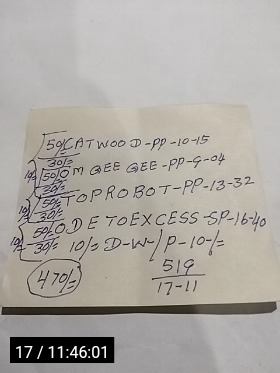 50/= CATWOOD-PP-10-15
30/=
10/= 50/= OMGEEGEE-PP-9-04
30/=
10/= 50/= TOPROBOT-PP-13-32
30/=
10/= 50/= ODETOEXCESS-SP-16-40
30/= 10/= D-W-/P-10-/=
470/= 519
17-11
17 / 11:46:01